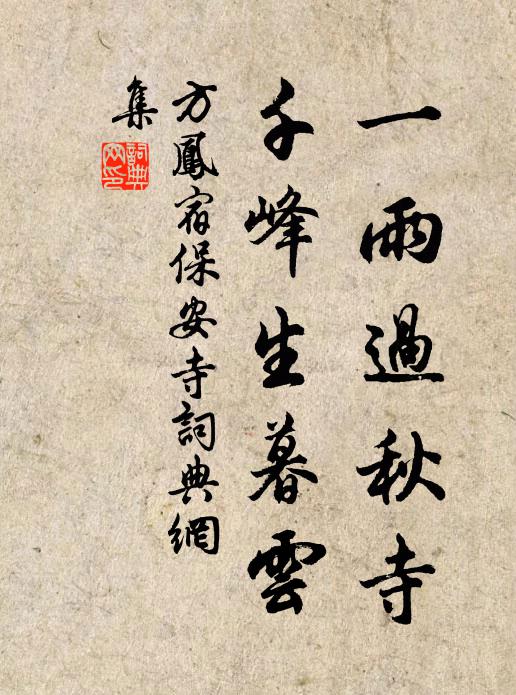 一雨過秋寺
千峰生暮雲
方鳳宿保安寺詞典網
集
詞典
網印